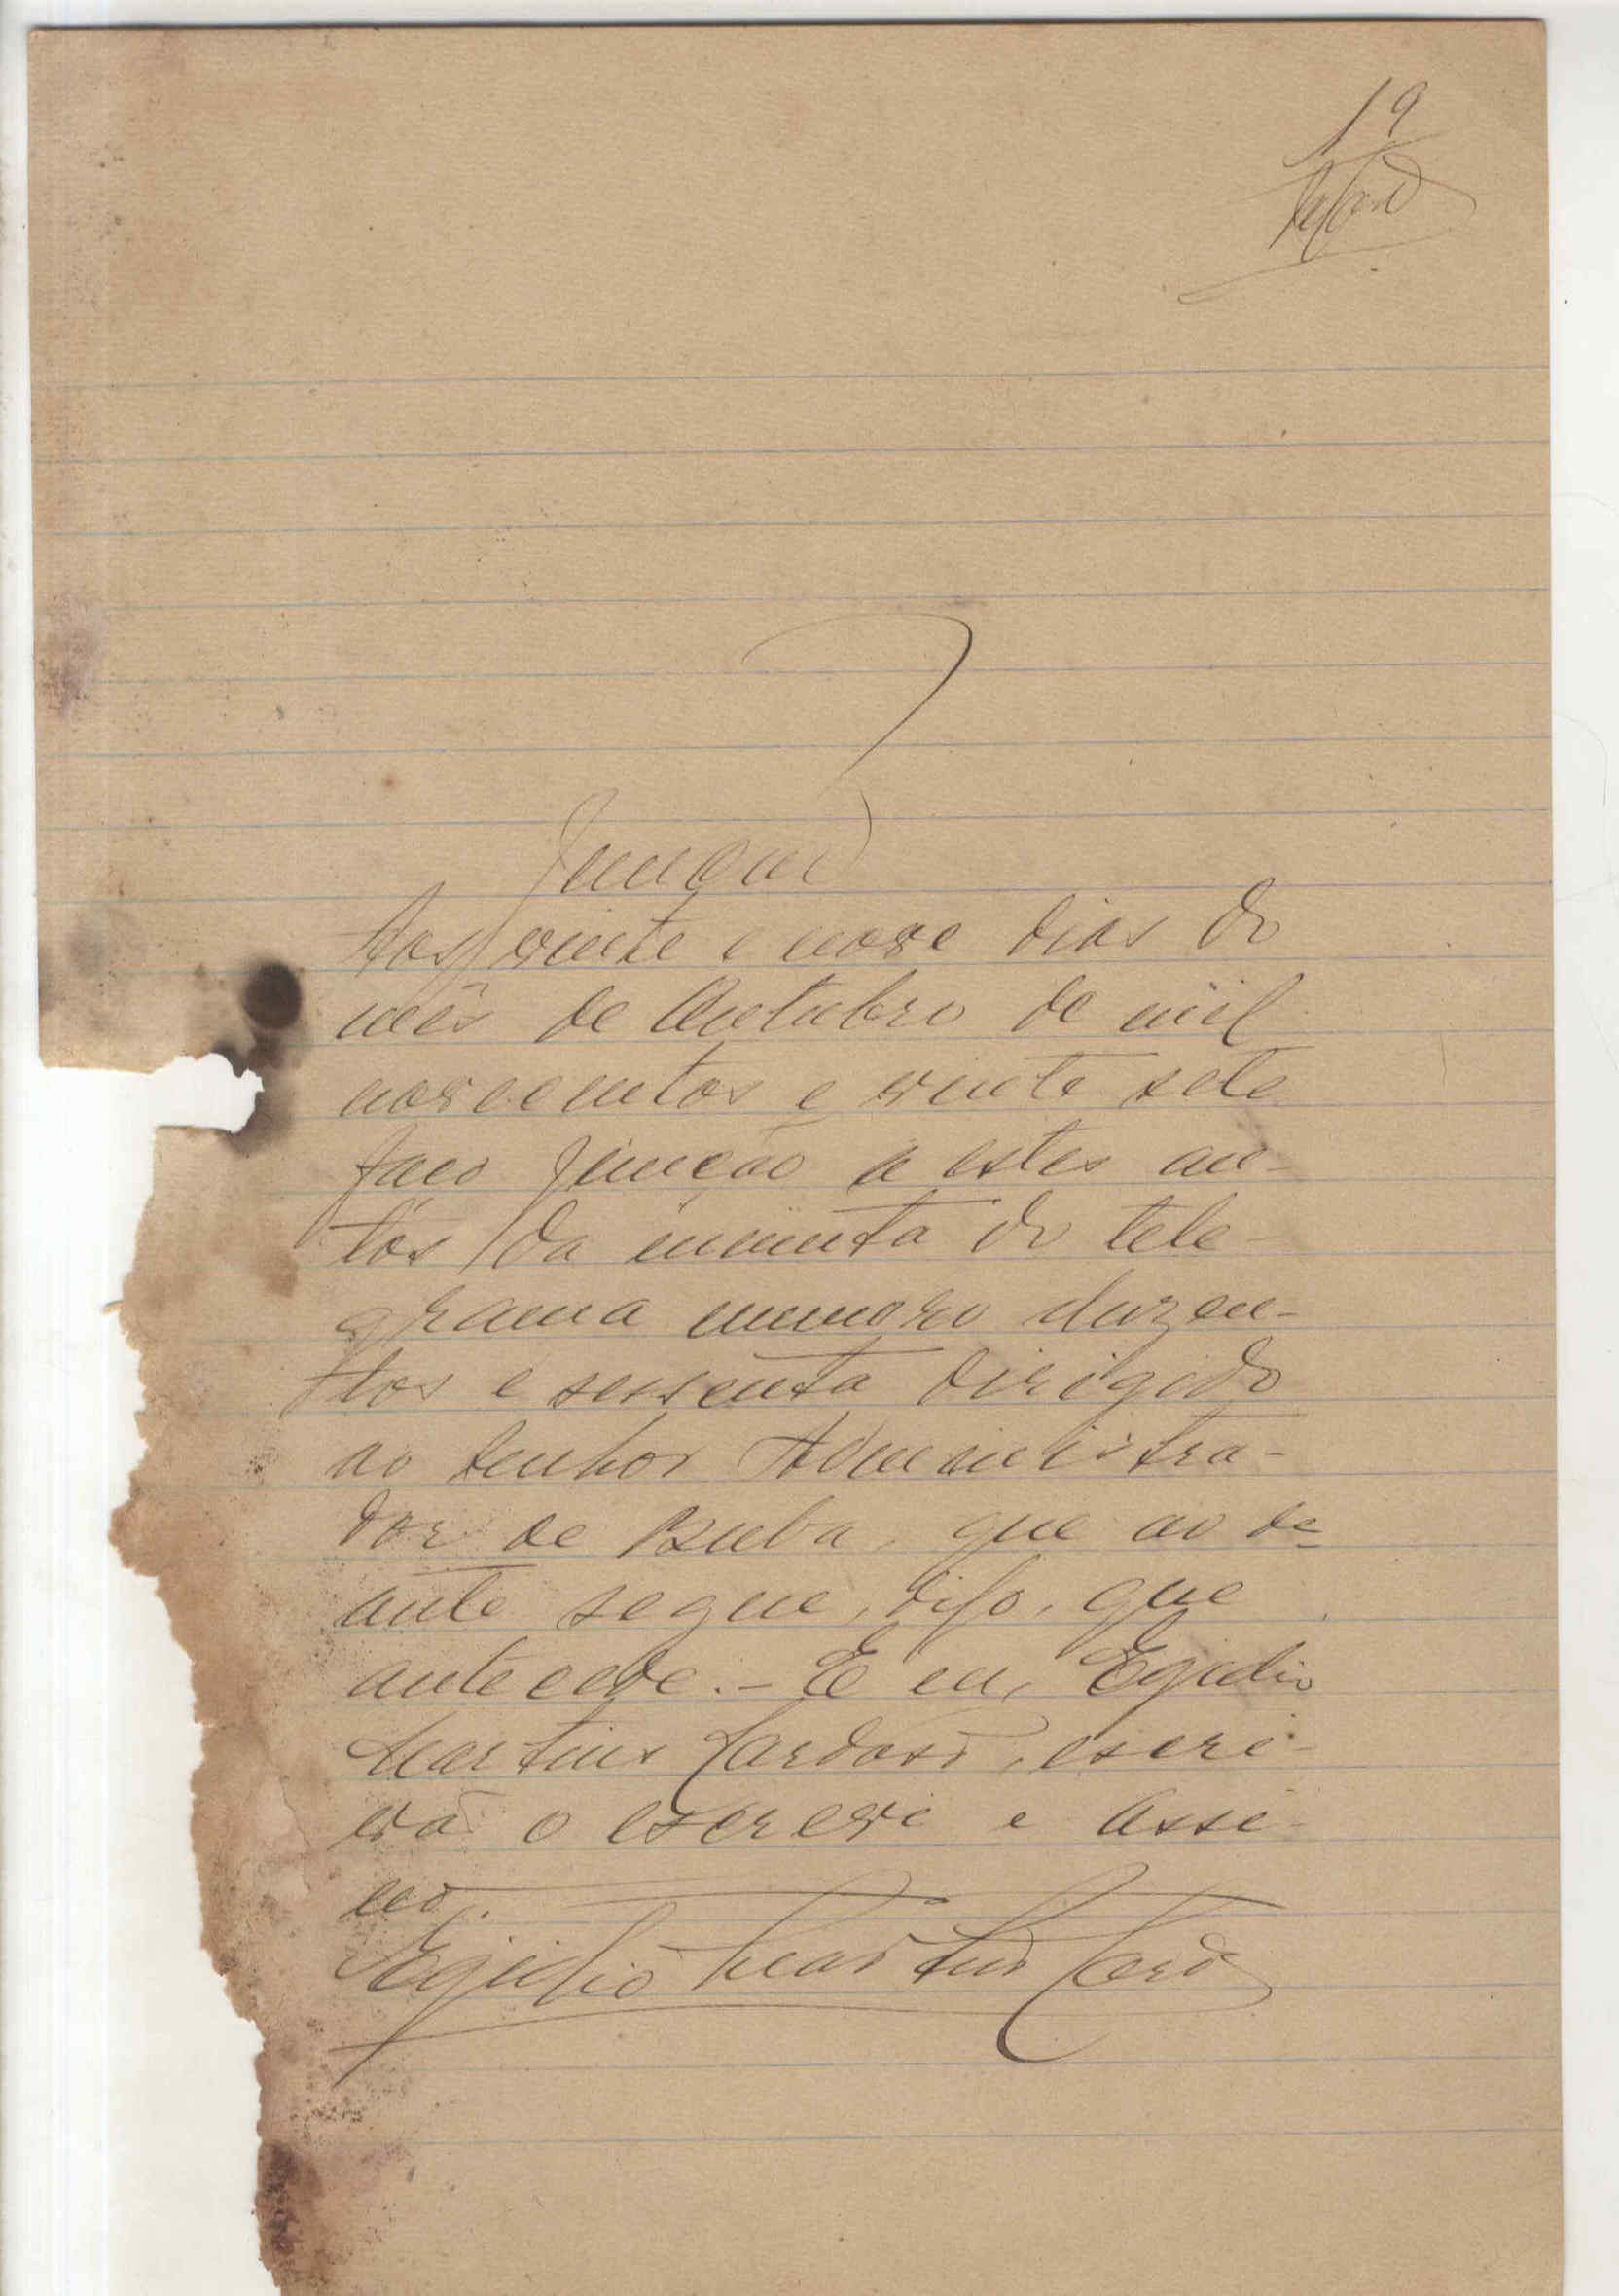 19
Junção
Aos vinte e nove dias do
mês de Outubro de mil
novecentos e vinte sete
faço junção a estes au-
tos da minuta do tele-
grama numero duzen-
tos e sessenta dirigido
ao Senhor Administra-
dor de Buba, que ao de-
ante segue, digo, que
antecede.- E eu, Egidio
Martins Cardoso, escri-
vão o escrevi e assi-
no.
Egidio Martins Cardo